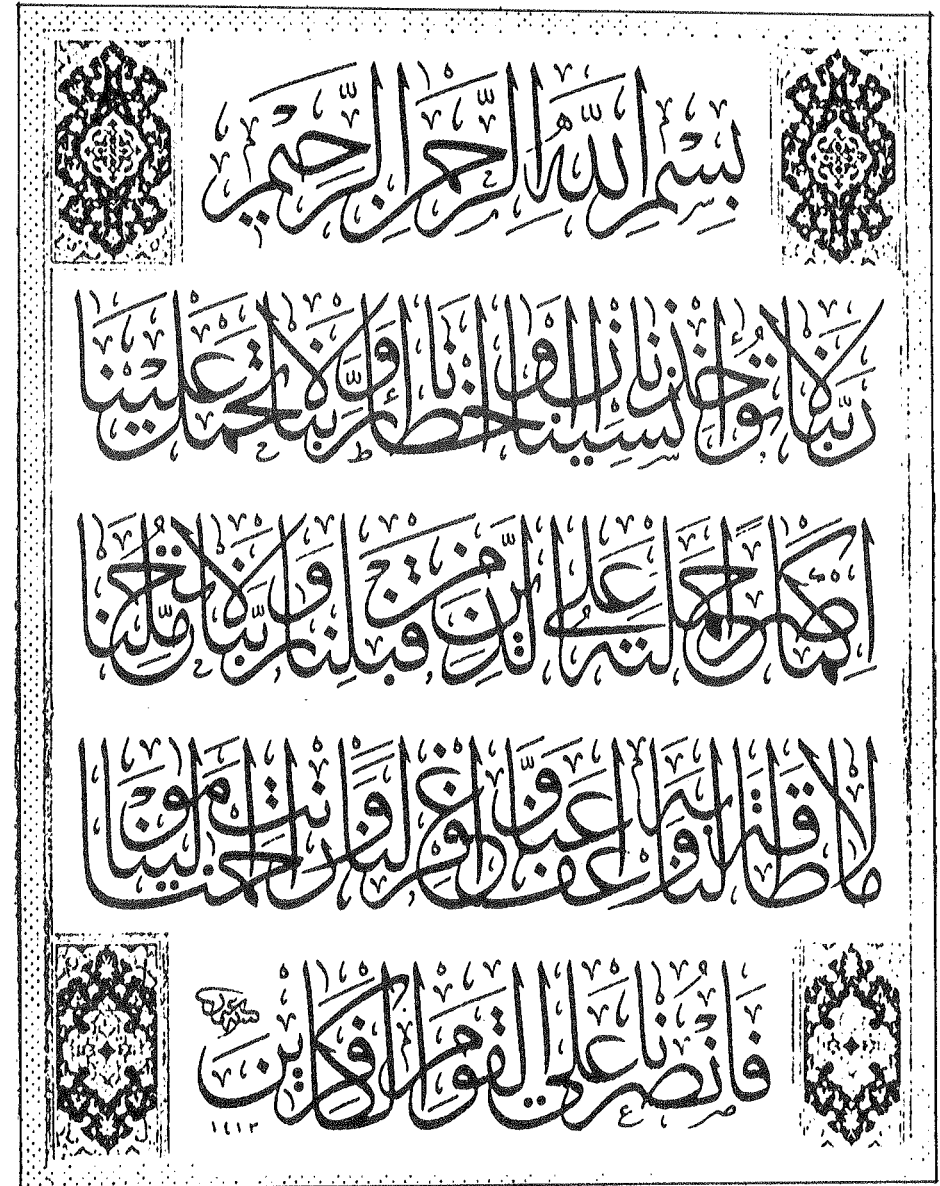 بِسْمِ اللهِ الرَّحْمنِ الرَّحِيمِ
رَبَّنَا لَا تُؤَاخِذْنَا إِنْ نَسِينَا أَوْ أَخْطَأْنَا رَبَّنَا وَلَا تَحْمِلْ عَلَيْنَا
إِصْرًا كَمَا حَمَلْتَهُ عَلَى الَّذِينَ مِنْ قَبْلِنَا رَبَّنَا وَلَا تُحَمِّلْنَا
مَا لَا طَاقَةَ لَنَا بِهِ وَاعْفُ عَنَّا وَاغْفِرْ لَنَا وَارْحَمْنَا أَنْتَ مَوْلينَا
فَانْصُرْنَا عَلَى الْقَوْمِ الْكَافِرِينَ